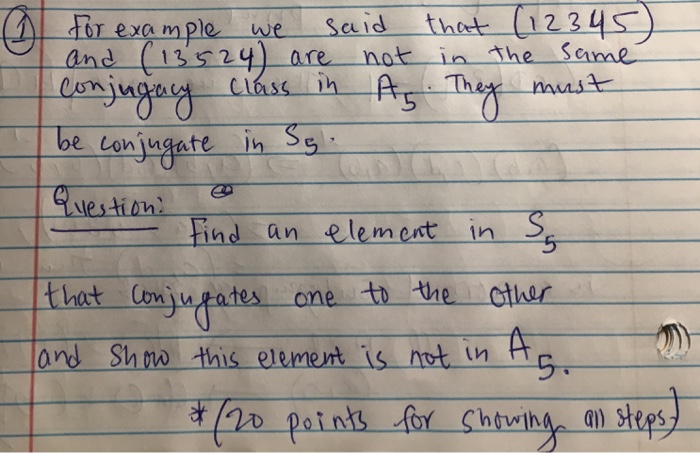 ① For example we said that (12345)
and (13524) are not in the same
conjugacy class in A5. They must
be conjugate in S5.
Question:
Find an element in S5
that conjugates one to the other
and show this element is not in A5.
*(20 points for showing all steps)